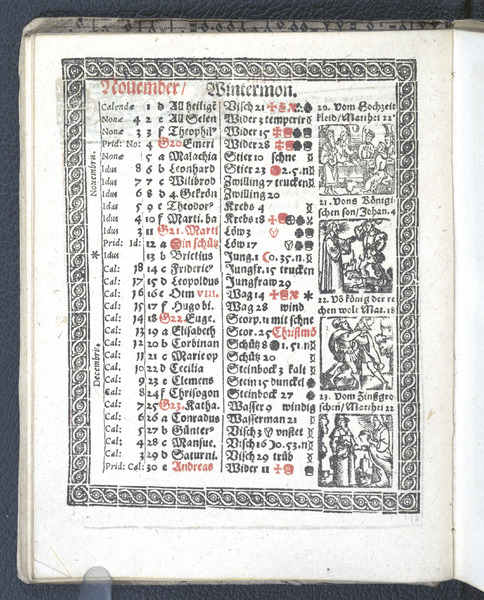 Nouember/ Wintermon.
Calendæ 1 d All heilige Visch 21
Nonæ 4 2 e All Selen Wider 3 temperir
Nonæ 3 3 f Theophil⁹ Wider 15
Prid: No: 4 G20 Emeri Wider 28
Nonæ 5 a Malachia Stier 10 schne
Idus 8 6 b Leonhard Stier 23 2.5.n
Idus 7 7 c Wilibrod Zwilling 7 trucken
Idus 6 8 d 4 Gekrön Zwilling 20
Idus 5 9 e Theodor⁹ Krebs 4
Idus 4 10 f Marti. ba Krebs 18
Idus 3 11 G21. Marti Löw 3
Prid: Id: 12 a Ein schütz Löw 17
Idus 13 b Brictius Jung. 1 0.35.n
Cal: 18 14 c Frideric⁹ Jungfr. 15 trucken
Cal: 17 15 d Leopoldus Jungfraw 29
Cal: 16 16 e Otm VIII. Wag 14
Cal: 15 17 f Hugo bi. Wag 28 wind
Cal: 14 18 G22 Euge. Scorp. 11 mit schne
Cal: 13 19 a Elisabeth Scor. 25 Christmo
Cal: 12 20 b Corbinan Schütz 8 1.51.n
Cal: 11 21 c Marie op Schütz 20
Cal: 10 22 d Cecilia Steinbock 3 kalt
Cal: 9 23 e Clemens Stein 15 dunckel
Cal: 8 24 f Chrisogon Steinbock 27
Cal: 7 25 G23. Katha. Wasser 9 windig
Cal: 6 26 a Conradus Wasserman 21
Cal: 5 27 b Günter⁹ Visch 3 vnstet
Cal: 4 28 c Mansue. Visch 16 0.53.n
Cal: 3 29 d Saturni. Visch 29 trüb
Prid: Cal: 30 e Andreas Wider 11
Nouembris.
Decembris.
20. Vom Hochzeit
kleid/Matthei 22
21. Vons Königi
schen son/Johan. 4
22. Vō könig der re
chen wolt Mat. 18
23. Vom Zinßgro
schen/Matthei 22